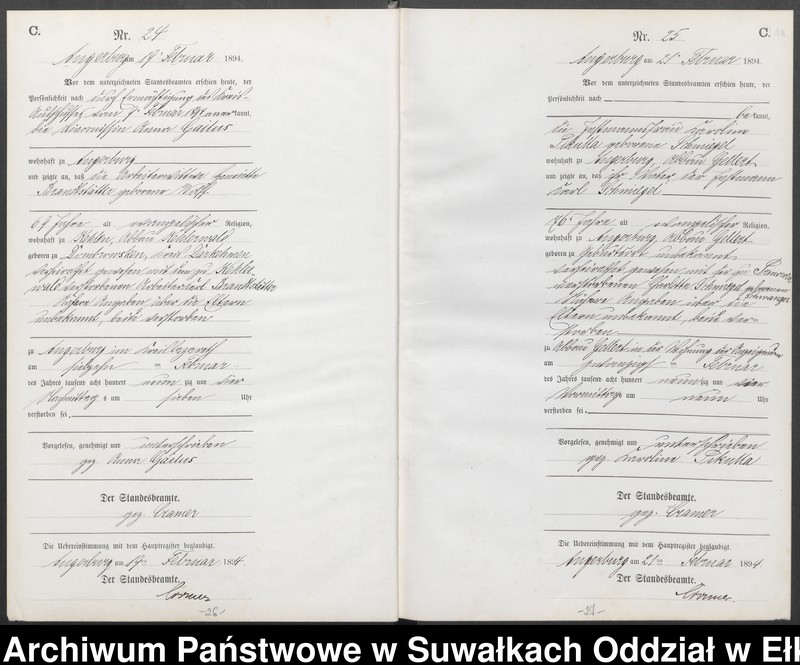 C.
Nr. 24
Angerburg am 19ten Februar 1894.
Vor dem unterzeichneten Standesbeamten erschien heute, der
Persönlichkeit nach durch Ermächtigung des Kreis-
Ausschusses vom Februar 1894 anerkannt,
die Anna Gailus
wohnhaft zu Angerburg
und zeigte an, daß die Arbeiterwittwe Henriette
Brandstädter geborene Wolff
69 Jahre alt evangelischer Religion,
wohnhaft zu Kehlen, Abbau Kehlerwald
geboren zu Kreis Darkehmen
verheirathet gewesen mit dem zu Kehler-
wald verstorbenen Brandstädter
Nähere Angaben über die Eltern
unbekannt, beide verstorben
zu Angerburg im Kreislazareth
am siebzehnten Februar
des Jahres tausend acht hundert neunzig und vier
Nachmittags um sieben Uhr
verstorben sei.
Vorgelesen, genehmigt und unterschrieben
gez. Anna Gailus
Der Standesbeamte.
gez. Cramer
Die Uebereinstimmung mit dem Hauptregister beglaubigt.
Angerburg am 19ten Februar 1894
Der Standesbeamte.
Cramer
-26-
C.
Nr. 25
Angerburg am 21ten Februar 1894.
Vor dem unterzeichneten Standesbeamten erschien heute, der
Persönlichkeit nach
bekannt,
die Karoline
Pikulla geborene Schmiegel
wohnhaft zu Angerburg, Abbau Gellert
und zeigte an, daß ihr Vater der
Karl Schmiegel
76 Jahre alt evangelischer Religion,
wohnhaft zu Angerburg Abbau Gellert
geboren zu Geburtsort unbekannt
verheirathet gewesen mit der zu
verstorbenen Charlotte Schmiegel geborenen
Schwanger
Nähere Angaben über die
Eltern unbekannt, beide ver-
storben
zu Abbau Gellert in der Wohnung der Anzeigenden
am zwanzigsten Februar
des Jahres tausend acht hundert neunzig und vier
Vormittags um neun Uhr
verstorben sei.
Vorgelesen, genehmigt und unterschrieben
gez. Karoline Pikulla
Der Standesbeamte.
gez. Cramer
Die Uebereinstimmung mit dem Hauptregister beglaubigt.
Angerburg am 21ten Februar 1894
Der Standesbeamte.
Cramer.
-27-
Archiwum Państwowe w Suwałkach Oddział w Eł